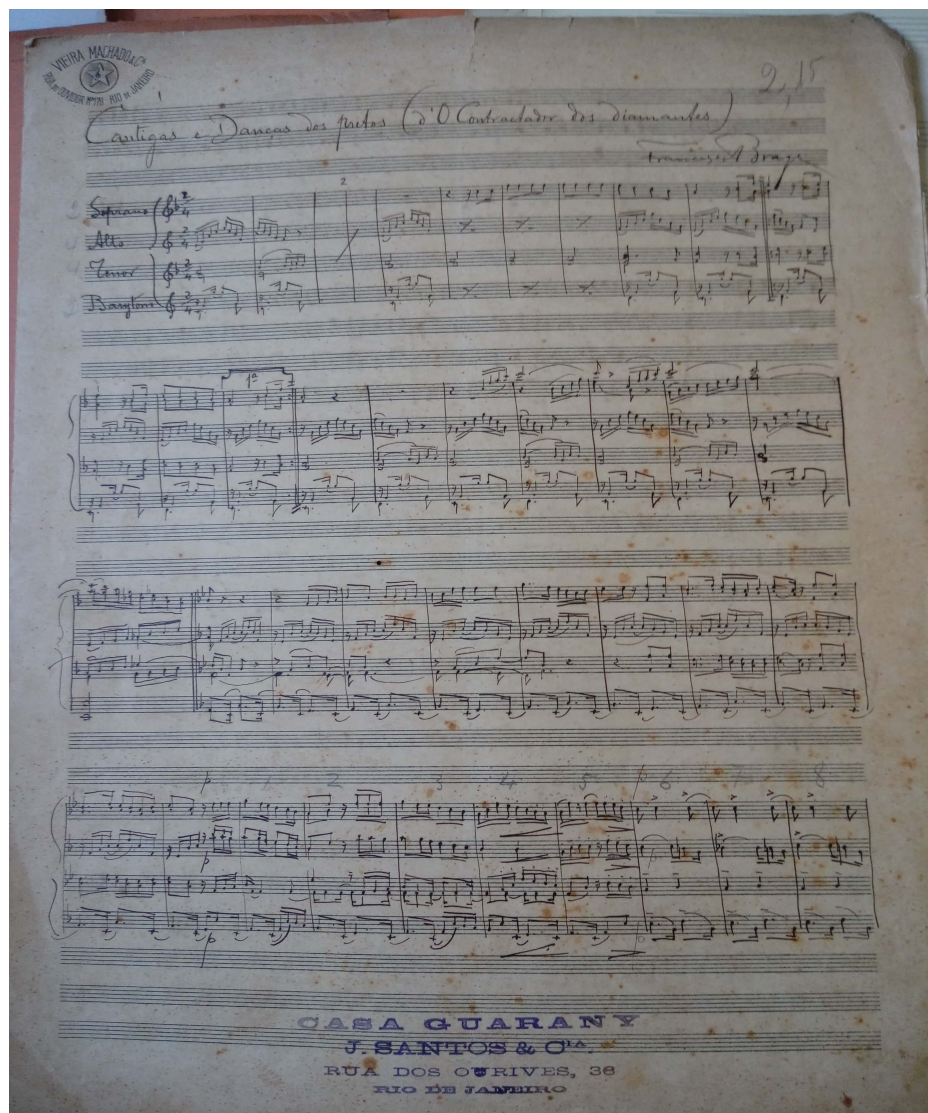 VIEIRA MACHADO & Cª
RUA DO OUVIDOR Nº 179 RIO DE JANEIRO
2,15
Cantigas e Danças dos pretos (d'O Contractador dos diamantes)
Francisco Braga
2
Soprano
Alto
Tenor
Barytono
1ª
p 2 3 4 5 p 6 7 8
p
p
CASA GUARANY
J. SANTOS & CIA.
RUA DOS OURIVES, 38
RIO DE JANEIRO